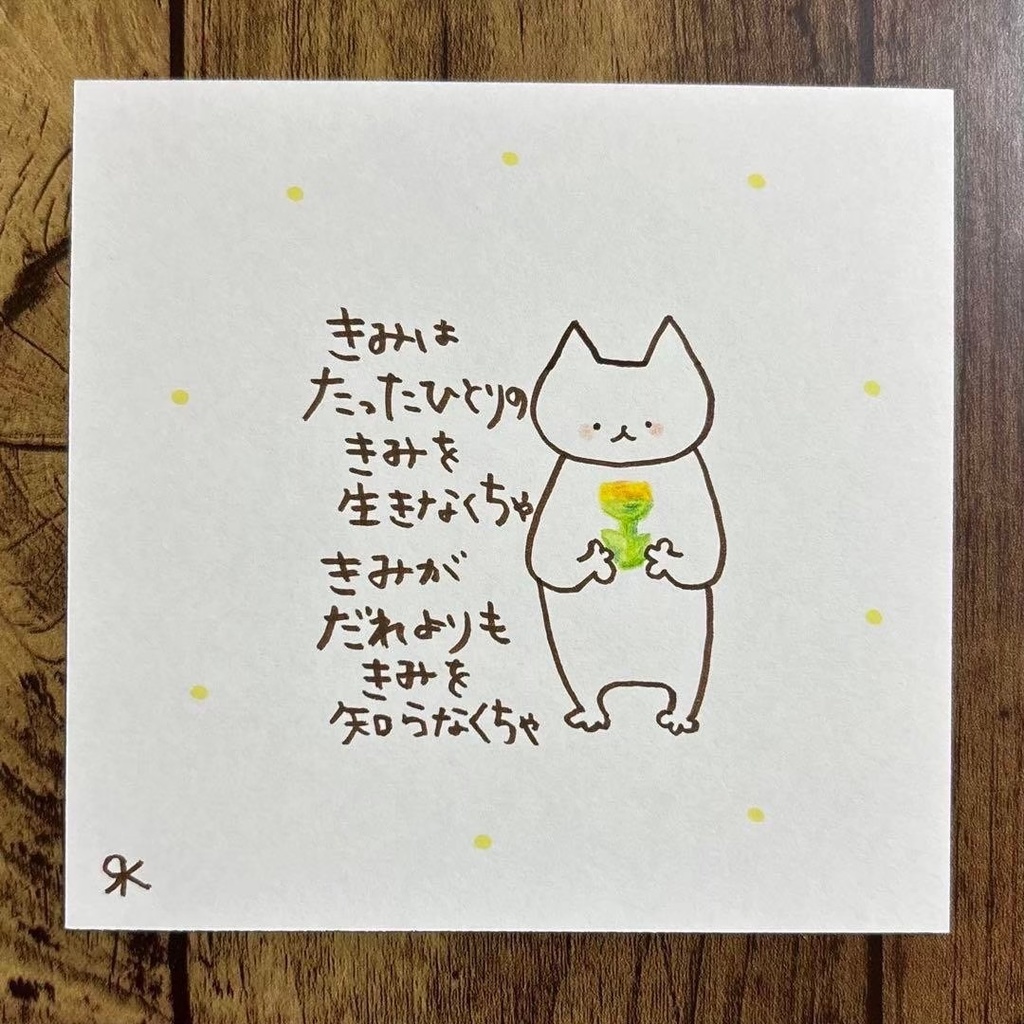 きみは
たったひとりの
きみを
生きなくちゃ
きみが
だれよりも
きみを
知らなくちゃ